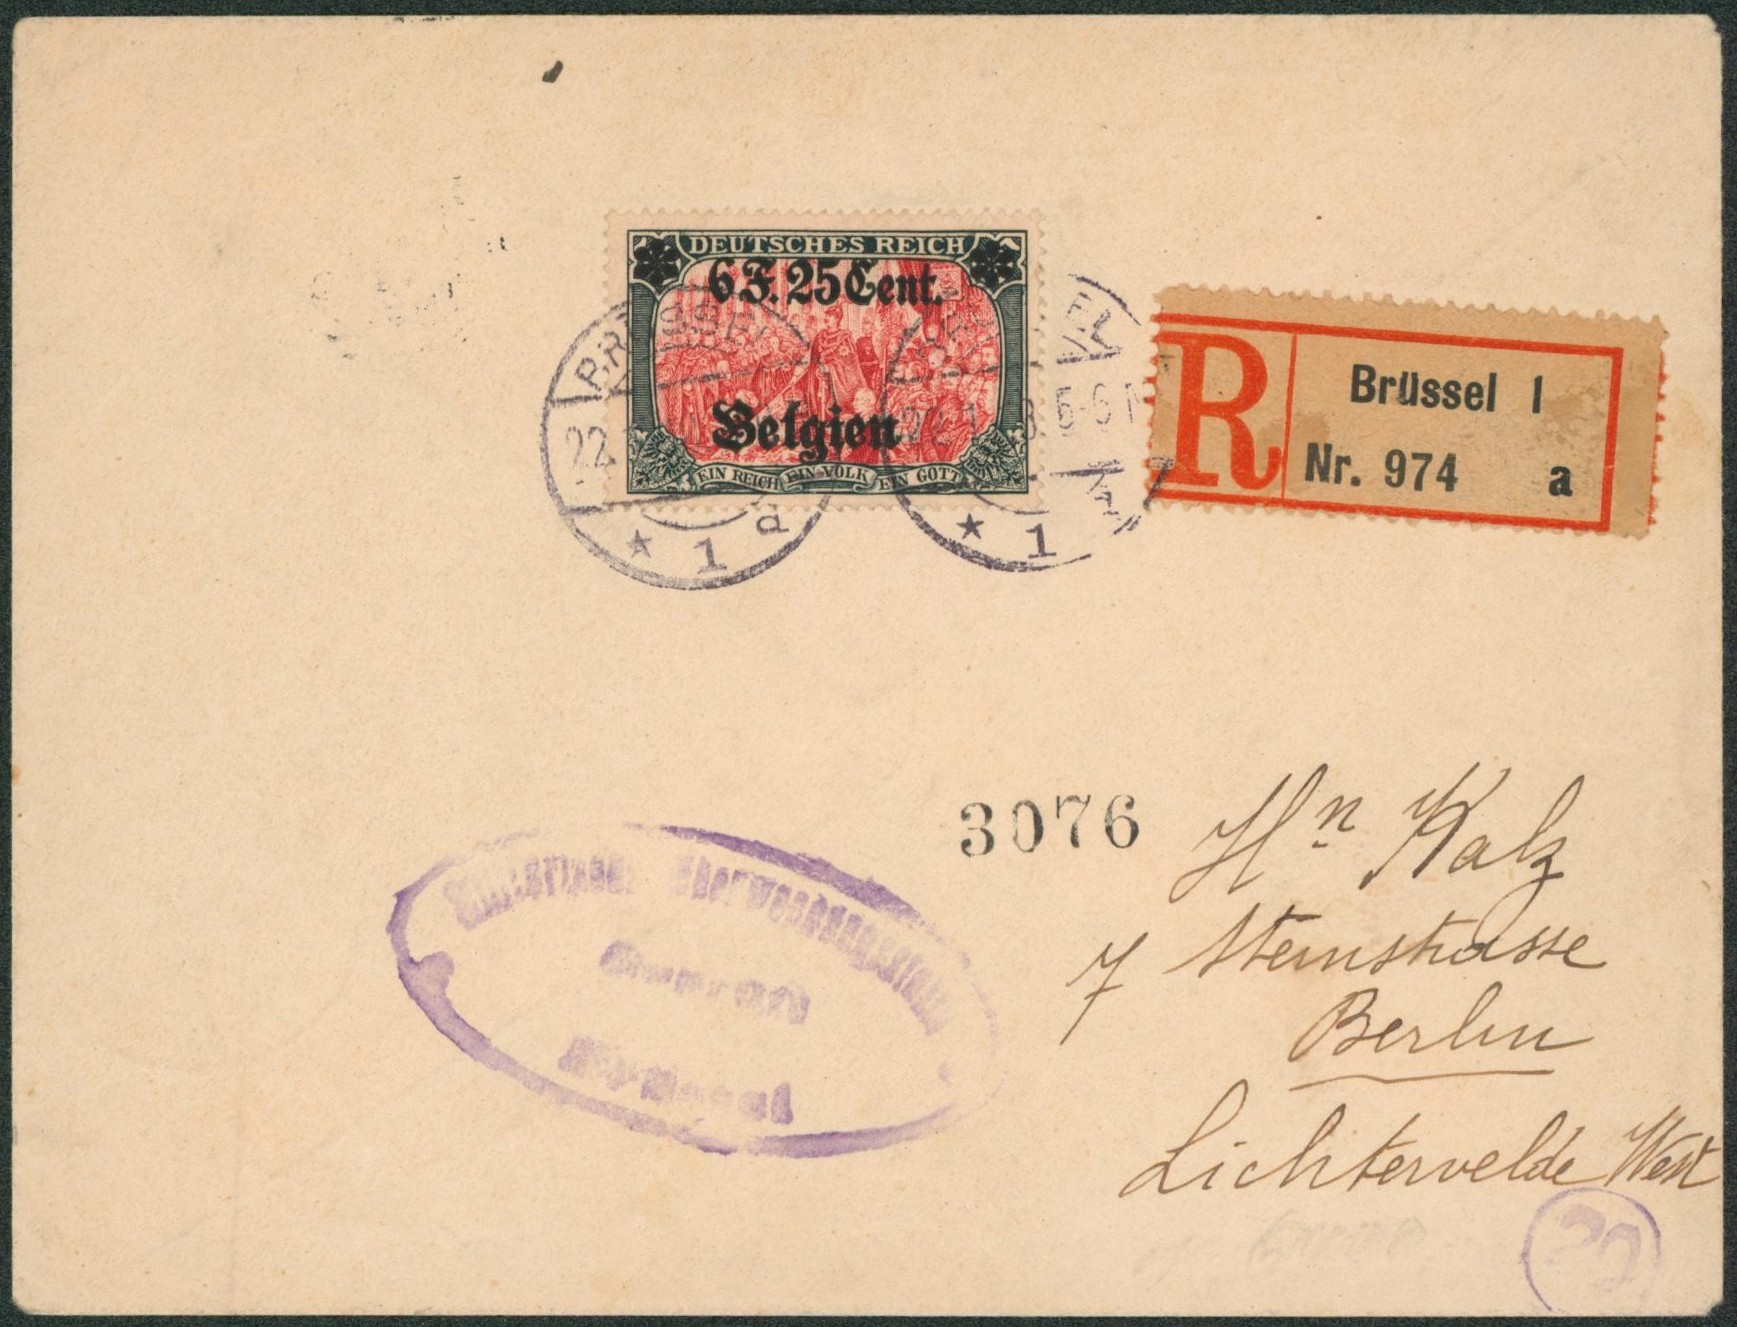 DEUTSCHES REICH
6 F. 25 Cent.
Belgien
EIN REICH EIN VOLK EIN GOTT
22
* 1 d
22.1 8.5-6 N
* 1
R
Brüssel 1
Nr. 974 a
3076
Hn Kalz
7 Steinstrasse
Berlin
Lichtervelde West